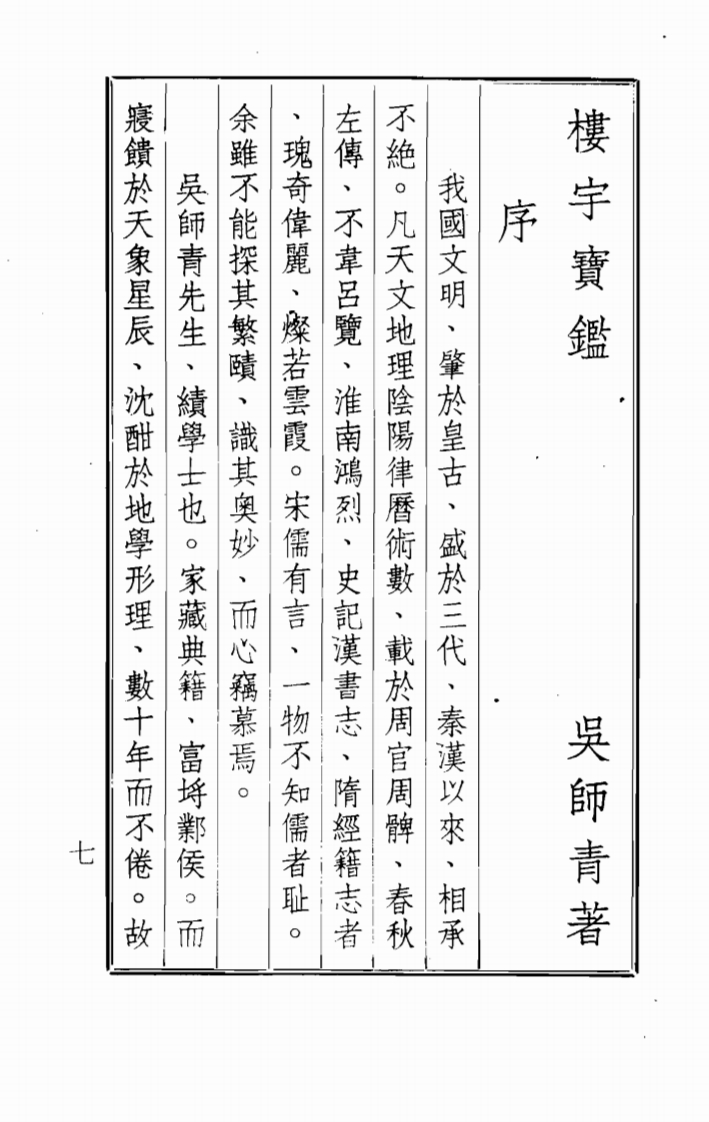 樓宇寶鑑 吳師青著
序
我國文明、肇於皇古、盛於三代、秦漢以來、相承
不絕。凡天文地理陰陽律曆術數、載於周官周髀、春秋
左傳、不韋呂覽、淮南鴻烈、史記漢書志、隋經籍志者
、瑰奇偉麗、燦若雲霞。宋儒有言、一物不知儒者耻。
余雖不能探其繁賾、識其奧妙、而心竊慕焉。
吳師青先生、績學士也。家藏典籍、富埒鄴侯。而
寢饋於天象星辰、沈酣於地學形理、數十年而不倦。故
七